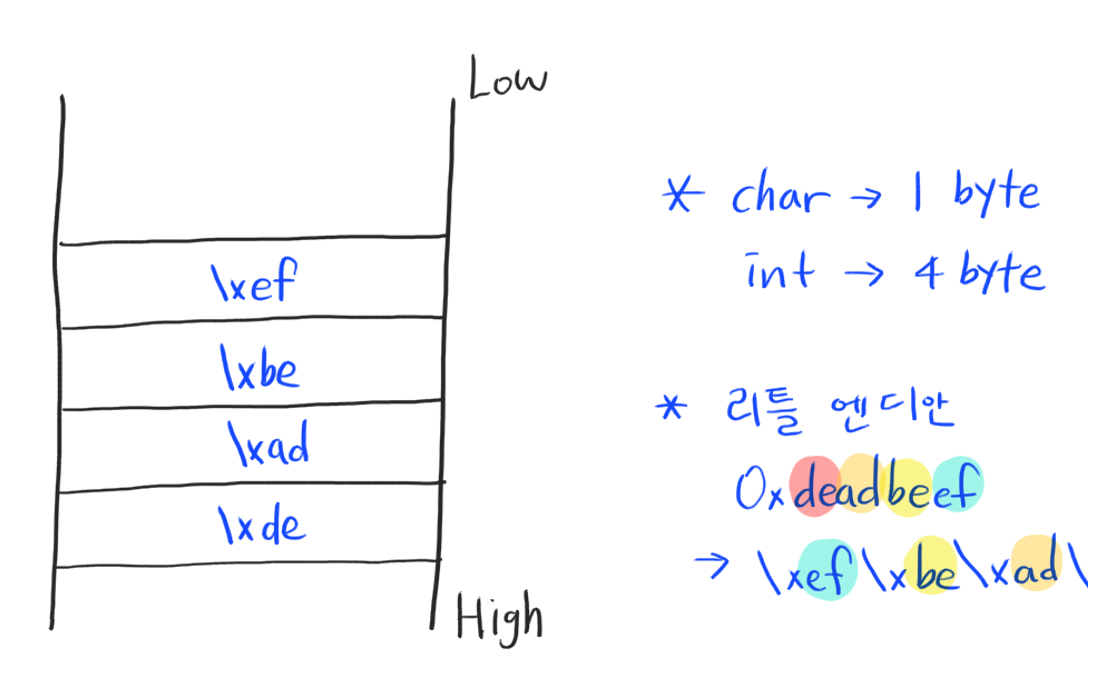 Low
\xef
\xbe
\xad
\xde
High
* char → 1 byte
int → 4 byte
* 리틀 엔디안
0xdeadbeef
→ \xef\xbe\xad\